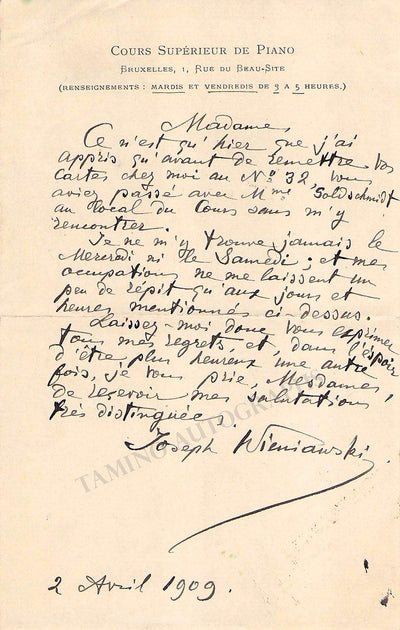 COURS SUPÉRIEUR DE PIANO
BRUXELLES, 1, RUE DU BEAU-SITE
(RENSEIGNEMENTS : MARDIS ET VENDREDIS DE 3 A 5 HEURES.)
Madame,
Ce n'est qu'hier que j'ai
appris qu'avant de remettre vos
cartes chez moi au No 32, vous
aviez passé avec Mme Goldschmidt
au local du Cours sans m'y
rencontrer.
Je ne m'y trouve jamais le
Mercredi ni le Samedi ; et mes
ocupations ne me laissent un
peu de répit qu'aux jours et
heures mentionnés ci-dessus.
Laissez-moi donc vous exprimer
tous mes regrets et, dans l'espoir
d'être plus heureux une autre
fois, je vous prie, Mesdames,
de recevoir mes salutations
très distinguées.
Joseph Wieniawski
TAMINO AUTOGRAPHS
2 Avril 1909.